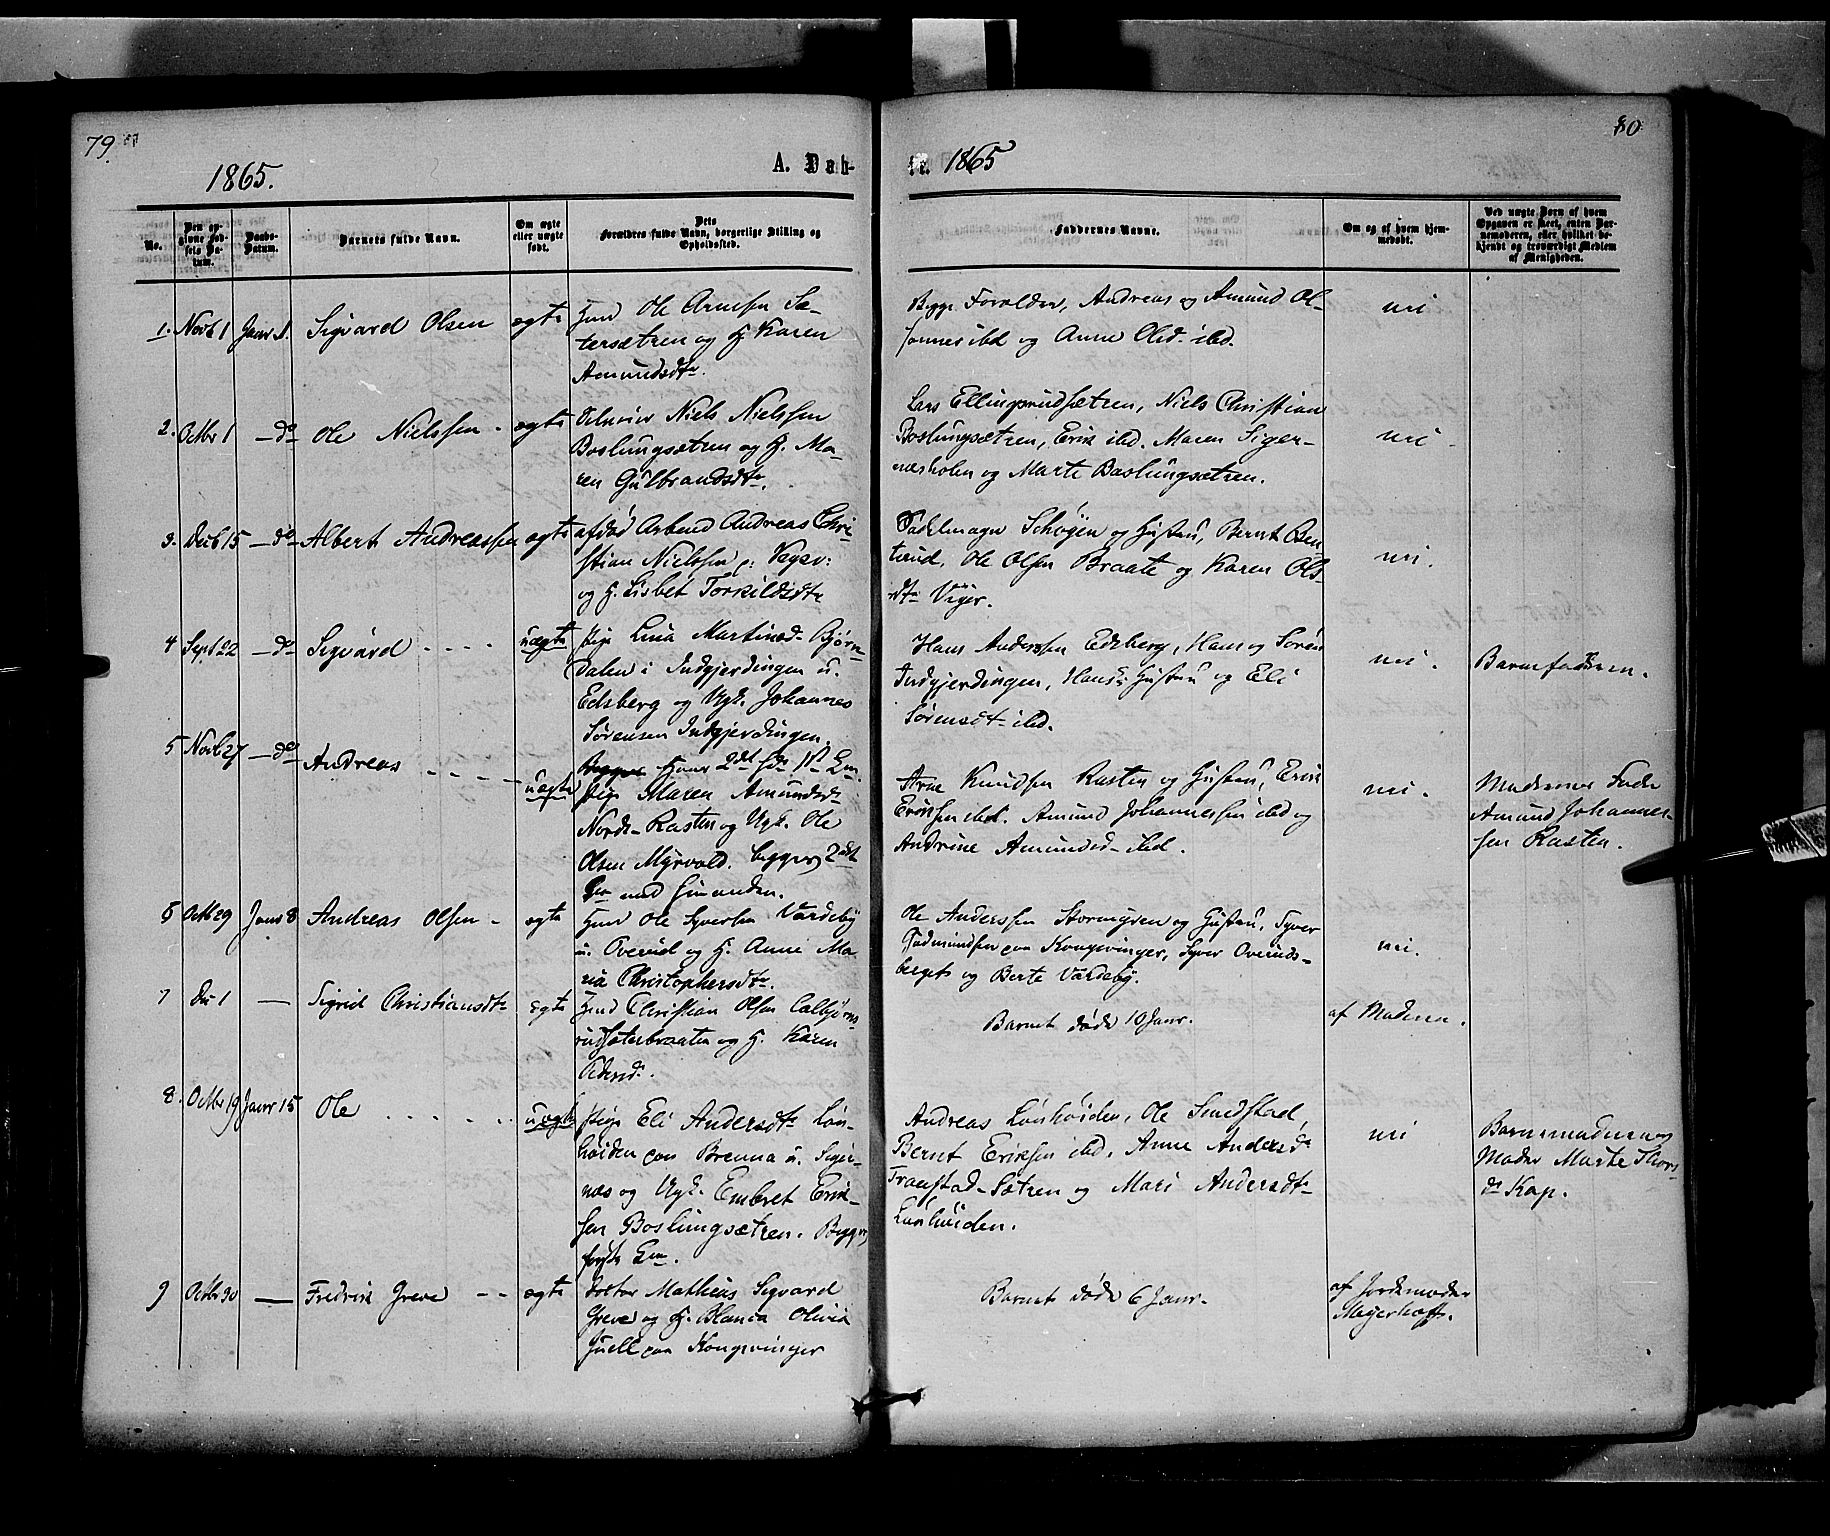 79
80
1865.
A. Døb-
te. 1865
No.
Den op-
givne Fød-
sels Da-
tum.
Daabs-
Datum.
Barnets fulde Navn.
Om ægte
eller uægte
født.
Dets
Forældres fulde Navn, borgerlige Stilling og
Opholdssted.
Faddernes Navne.
Om og af hvem hjem-
medøbt.
Ved uægte Børn af hvem
Opgaven er skeet, enten Bar-
nemoderen, eller hvilket be-
kjendt og troværdigt Medlem
af Menigheden.
1. Novb 1 Janr 1. Sigvard Olsen ægte
Hmd Ole Arnesen Sæ-
tersætren og H. Karen
Amundsdtr.
Begge Forældre, Andreas og Amund Ol-
sønner ibd og Anne Olsd. ibd.
nei
2. Octbr 1 — do Ole Nielssen - ægte
Niels Nielssen
Boslungsætren og H. Ma-
ren Gulbrandsdtr.
Lars Ellingsrudsætren, Niels Christian
Boslungsætren, Erik ibd. Maren Siger-
næsholen og Marte Boslungsætren.
nei
3. Decb 15 — do Albert Andreassen ægte
afdød Arbmd Andreas Chri-
stian Nielssen p: Veger:
og H. Lisbet Torkildsdtr
Schøyen og Hustru, Bernt Ben-
terud, Ole Olsen Braate og Karen Ols-
dtr Viger.
nei.
4 Sept 22 — do Sigvard - - - - uægte
Pige Lina Martinsd. Bjørn-
dalen i Indgjerdingen u.
Edsberg og Ugk. Johannes
Sørensen Indgjerdingen.
Begges
Hans Anderssen Edsberg, Hans og Søren
Indgjerdingen, Hans's Hustru og Eli
Sørensdtr ibd.
nei.
Barnefaderen.
5 Novb 27 — do Andreas - - - - - uægte
Hans 2det Hds 1ste Lm.
Pige Maren Amundsdtr
Nordre Rasten og Ugk. Ole
Olsen Myrvold. begges 2det
Lm med hinanden.
Arne Knudsen Rasten og Hustru, Erik
Eriksen ibd. Amund Johannessen ibd og
Andrine Amundsd. ibd.
nei.
Moderens Fader
Amund Johannes-
sen Rasten.
6 Octb 29 Janr 8 Andreas Olsen - ægte
Hmd Ole Syversen Vardeby
u. Overud og H. Anne Ma-
ria Christophersdtr.
Ole Anderssen Stormyren og Hustru, Syver
Gudmundsen paa Kongsvinger, Syver Overuds-
berget og Berte Vardeby.
nei.
7 Dec 1 — Sigrid Christiansdtr ægte
Hmd Christian Olsen Calbjørns-
rudsæterbraaten og H. Karen
Barnet døde 10 Janr.
af Moderen.
8. Octbr 19 Janr 15 Ole - - - - - uægte
Pige Eli Andersdtr Løn-
høiden paa Brenna u. Siger-
næs og Ugk. Embret Erik-
sen Boslungsætren. Begges
første Lm.
Andreas Lønhøiden, Ole Smedstad,
Bernt Eriksen ibd, Anne Andersd
Framstad-Sætren og Mari Andersdtr
Lønhøiden.
nei
Barnemoderen og
Moder Marte Thors
dr Kap.
9 Octbr 30 — Fredrik Greve - - ægte
Doctor Mathias Sigvard
Greve og H. Blanca Olivia
Juell paa Kongsvinger
Barnet døde 6 Janr.
af Jordemoder
Meyerhoff.